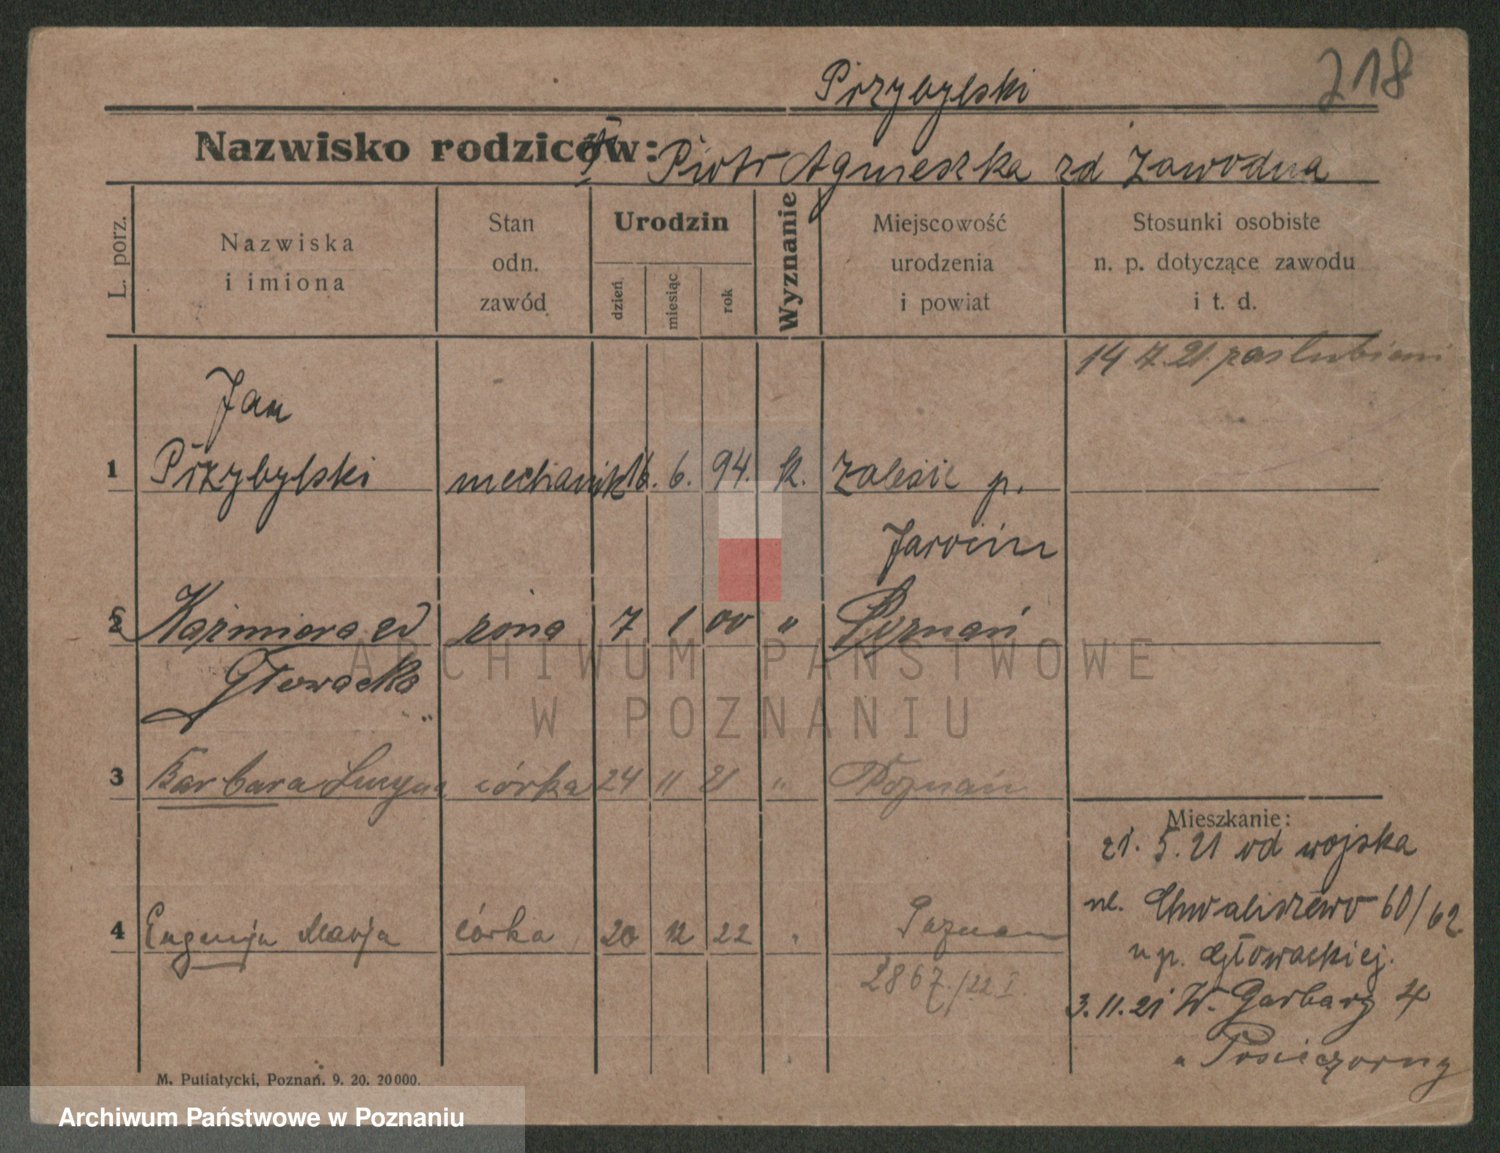 718
Przybylski
Nazwisko rodziców: Piotr Agnieszka zd Zawodna
L. porz.
Nazwiska
i imiona
Stan
odn.
zawód
Urodzin
dzień
miesiąc
rok
Wyznanie
Miejscowość
urodzenia
i powiat
Stosunki osobiste
n. p. dotyczące zawodu
i t. d.
14 7.21. zaslubieni
Jan
1 Przybylski mechanik 16. 6. 94. k. Zalesie p.
Jarocin
2 Kazmiera zd żona 7 1 00 " Poznań
Głowacka
3 Barbara Lucyna córka 24 11 21 " Poznań
4 Eugenja Marja córka 20 12 22 " Poznan
2867./22 I.
Mieszkanie:
21. 5. 21 od wojska
ul. Chwaliszewo 60/62
u p. Głowackiej.
3.11.21 W. Garbary 4
u
M. Putiatycki, Poznań. 9. 20. 20000.
ARCHIWUM PAŃSTWOWE
W POZNANIU
Archiwum Państwowe w Poznaniu